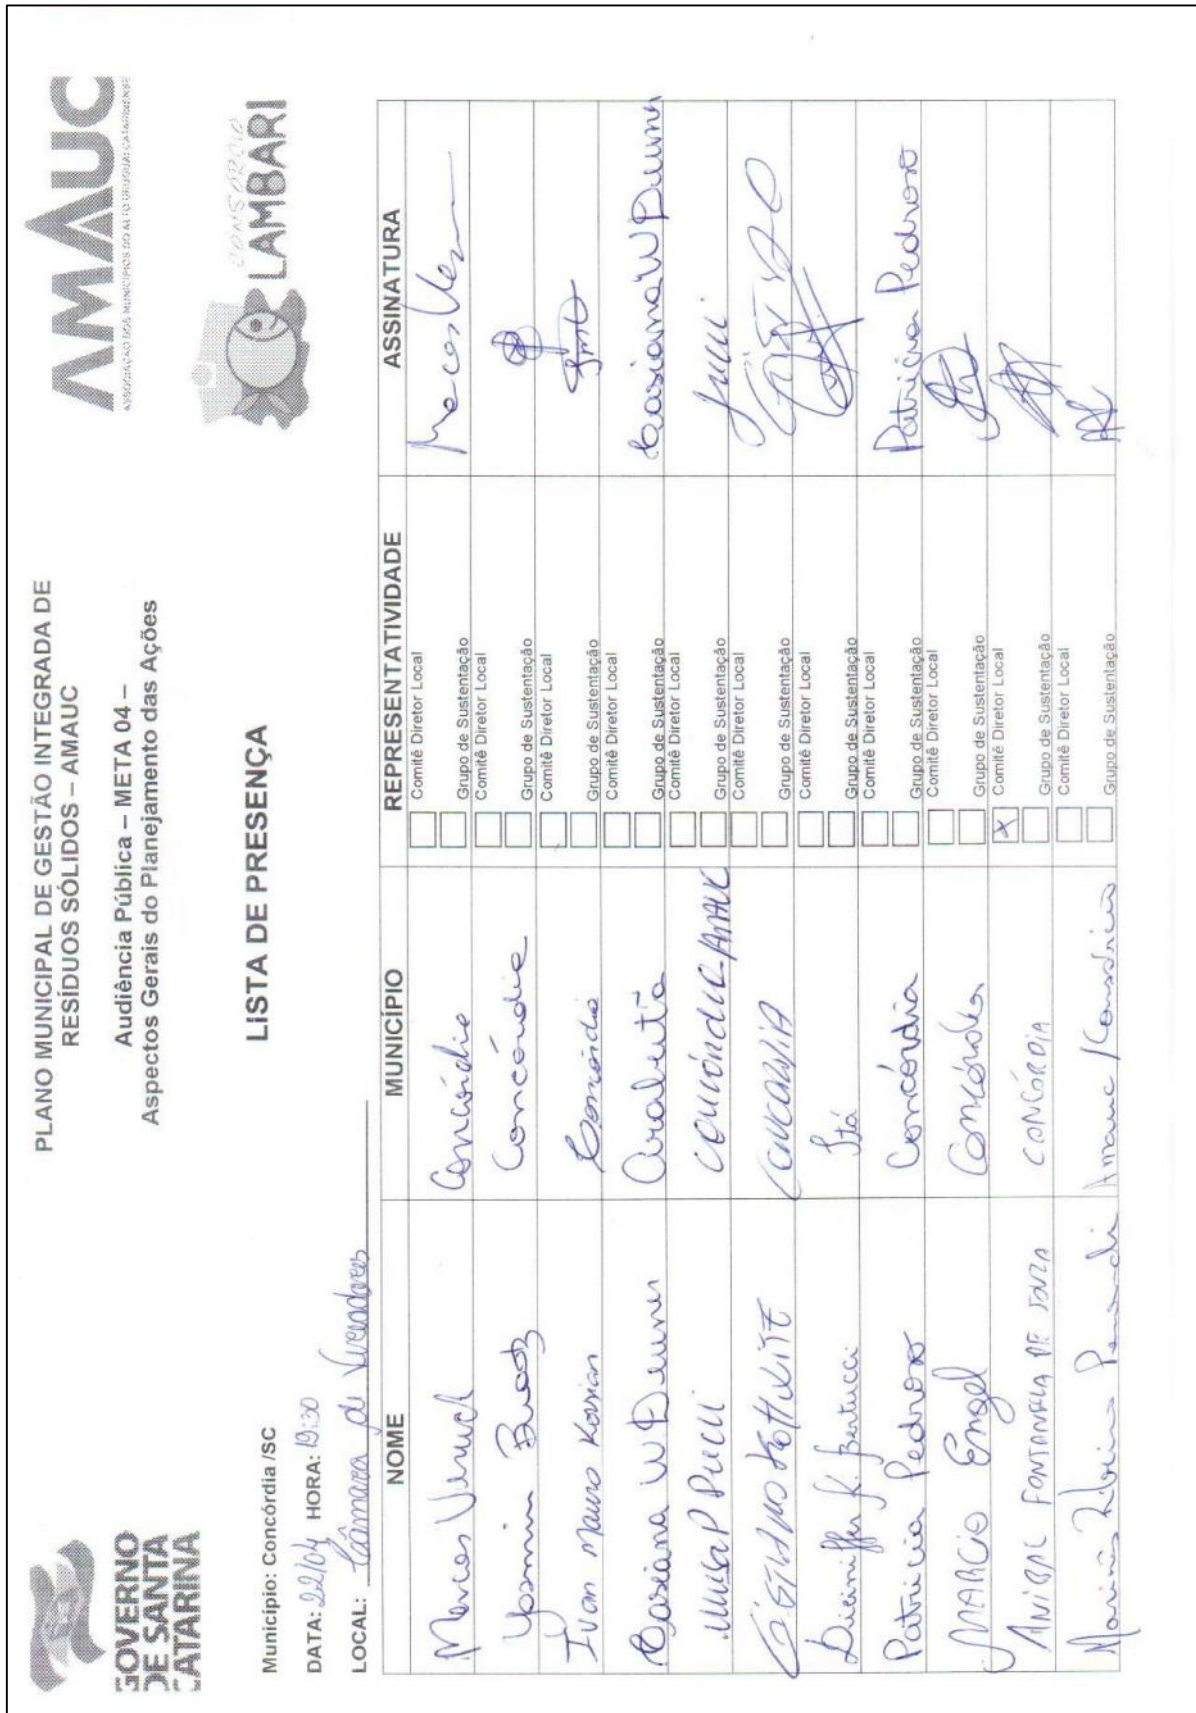 GOVERNO
DE SANTA
CATARINA
PLANO MUNICIPAL DE GESTÃO INTEGRADA DE
RESÍDUOS SÓLIDOS – AMAUC
Audiência Pública – META 04 –
Aspectos Gerais do Planejamento das Ações
AMAUC
ASSOCIAÇÃO DOS MUNICÍPIOS DO ALTO URUGUAI CATARINENSE
CONSÓRCIO
LAMBARI
LISTA DE PRESENÇA
Município: Concórdia /SC
DATA: 22/04 HORA: 19:30
LOCAL: Câmara de Vereadores
NOME MUNICÍPIO REPRESENTATIVIDADE ASSINATURA
Marcos Concórdia Comitê Diretor Local
Grupo de Sustentação
Yasmin Concórdia Comitê Diretor Local
Grupo de Sustentação
Ivan Mauro Concórdia Comitê Diretor Local
Grupo de Sustentação
Casiana W Arabutã Comitê Diretor Local Casiana W
Grupo de Sustentação
CONCÓRDIA-AMAUC Comitê Diretor Local
Grupo de Sustentação
CONCÓRDIA Comitê Diretor Local
Grupo de Sustentação
Dieiniffer K. Bertucci Itá Comitê Diretor Local
Grupo de Sustentação
Patricia Pedroso Concórdia Comitê Diretor Local Patricia Pedroso
Grupo de Sustentação
MARCIO Engel Concórdia Comitê Diretor Local
Grupo de Sustentação
ANIBAL FONTANELLA DE SOUZA CONCÓRDIA X Comitê Diretor Local
Grupo de Sustentação
Ribeiro Amauc/Consórcio Comitê Diretor Local
Grupo de Sustentação